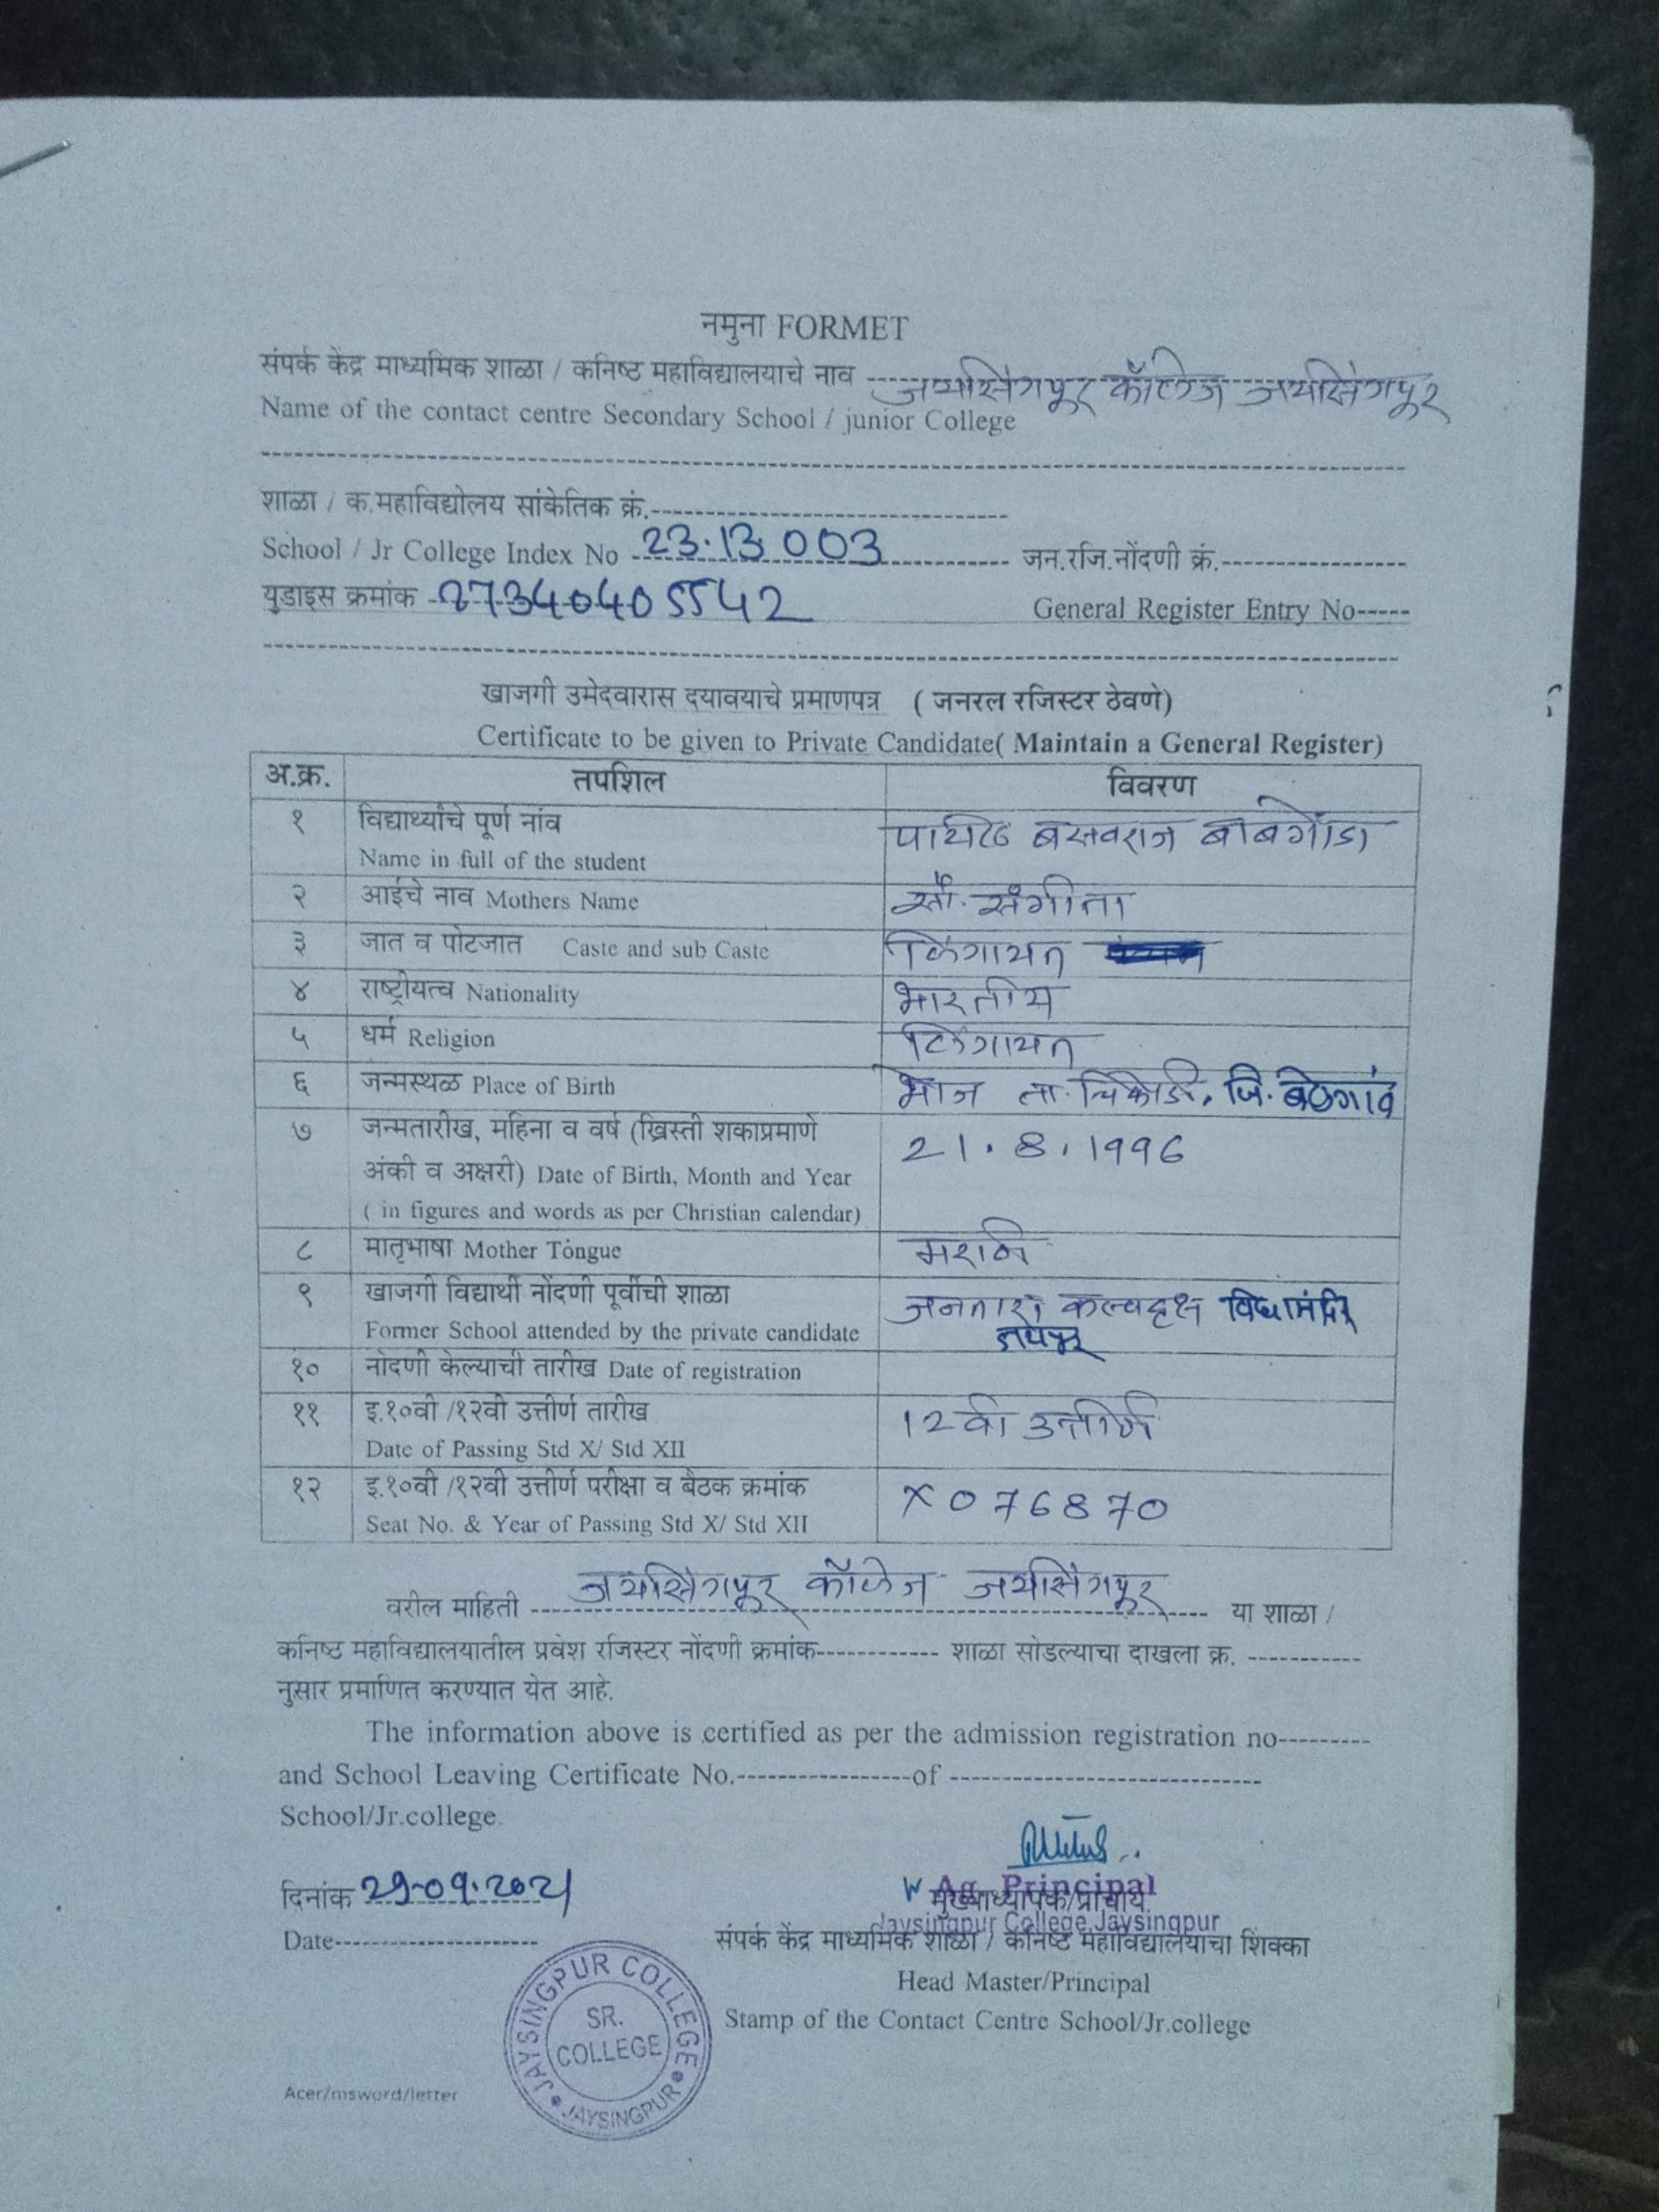 नमुना FORMET
संपर्क केंद्र माध्यमिक शाळा / कनिष्ठ महाविद्यालयाचे नाव ---- जयसिंगपूर कॉलेज जयसिंगपूर
Name of the contact centre Secondary School / junior College
शाळा / क.महाविद्योलय सांकेतिक क्रं.----------
School / Jr College Index No 23.13.003 ---------- जन.रजि.नोंदणी क्रं.----------
युडाइस क्रमांक 27340405542 General Register Entry No-----
खाजगी उमेदवारास दयावयाचे प्रमाणपत्र ( जनरल रजिस्टर ठेवणे)
Certificate to be given to Private Candidate( Maintain a General Register)
अ.क्र. तपशिल विवरण
१ विद्यार्थ्यांचे पूर्ण नांव
Name in full of the student बसवराज बाबगोंडा
२ आईचे नाव Mothers Name सौ. संगीता
३ जात व पोटजात Caste and sub Caste लिंगायत
४ राष्ट्रीयत्व Nationality भारतीय
५ धर्म Religion लिंगायत
६ जन्मस्थळ Place of Birth भोज ता. चिकोडी, जि. बेळगांव
७ जन्मतारीख, महिना व वर्ष (ख्रिस्ती शकाप्रमाणे
अंकी व अक्षरी) Date of Birth, Month and Year
( in figures and words as per Christian calendar) 21.8.1996
८ मातृभाषा Mother Tongue मराठी
९ खाजगी विद्यार्थी नोंदणी पूर्वीची शाळा
Former School attended by the private candidate जनतारा कल्पवृक्ष विद्यामंदिर
१० नोदणी केल्याची तारीख Date of registration
११ इ.१०वी /१२वी उत्तीर्ण तारीख
Date of Passing Std X/ Std XII 12वी उत्तीर्ण
१२ इ.१०वी /१२वी उत्तीर्ण परीक्षा व बैठक क्रमांक
Seat No. & Year of Passing Std X/ Std XII X076870
वरील माहिती ---- जयसिंगपूर कॉलेज जयसिंगपूर ---- या शाळा /
कनिष्ठ महाविद्यालयातील प्रवेश रजिस्टर नोंदणी क्रमांक------------ शाळा सोडल्याचा दाखला क्र. -----------
नुसार प्रमाणित करण्यात येत आहे.
The information above is certified as per the admission registration no---------
and School Leaving Certificate No.-----------------of ------------------------------
School/Jr.college.
दिनांक 29-09.2021
Ag. Principal
मुख्याध्यापक/प्राचार्य
Jaysingpur College, Jaysingpur
Date--------------------
संपर्क केंद्र माध्यमिक शाळा / कनिष्ठ महाविद्यालयाचा शिक्का
Head Master/Principal
Stamp of the Contact Centre School/Jr.college
JAYSINGPUR COLLEGE
SR.
COLLEGE
JAYSINGPUR
Acer/msword/letter